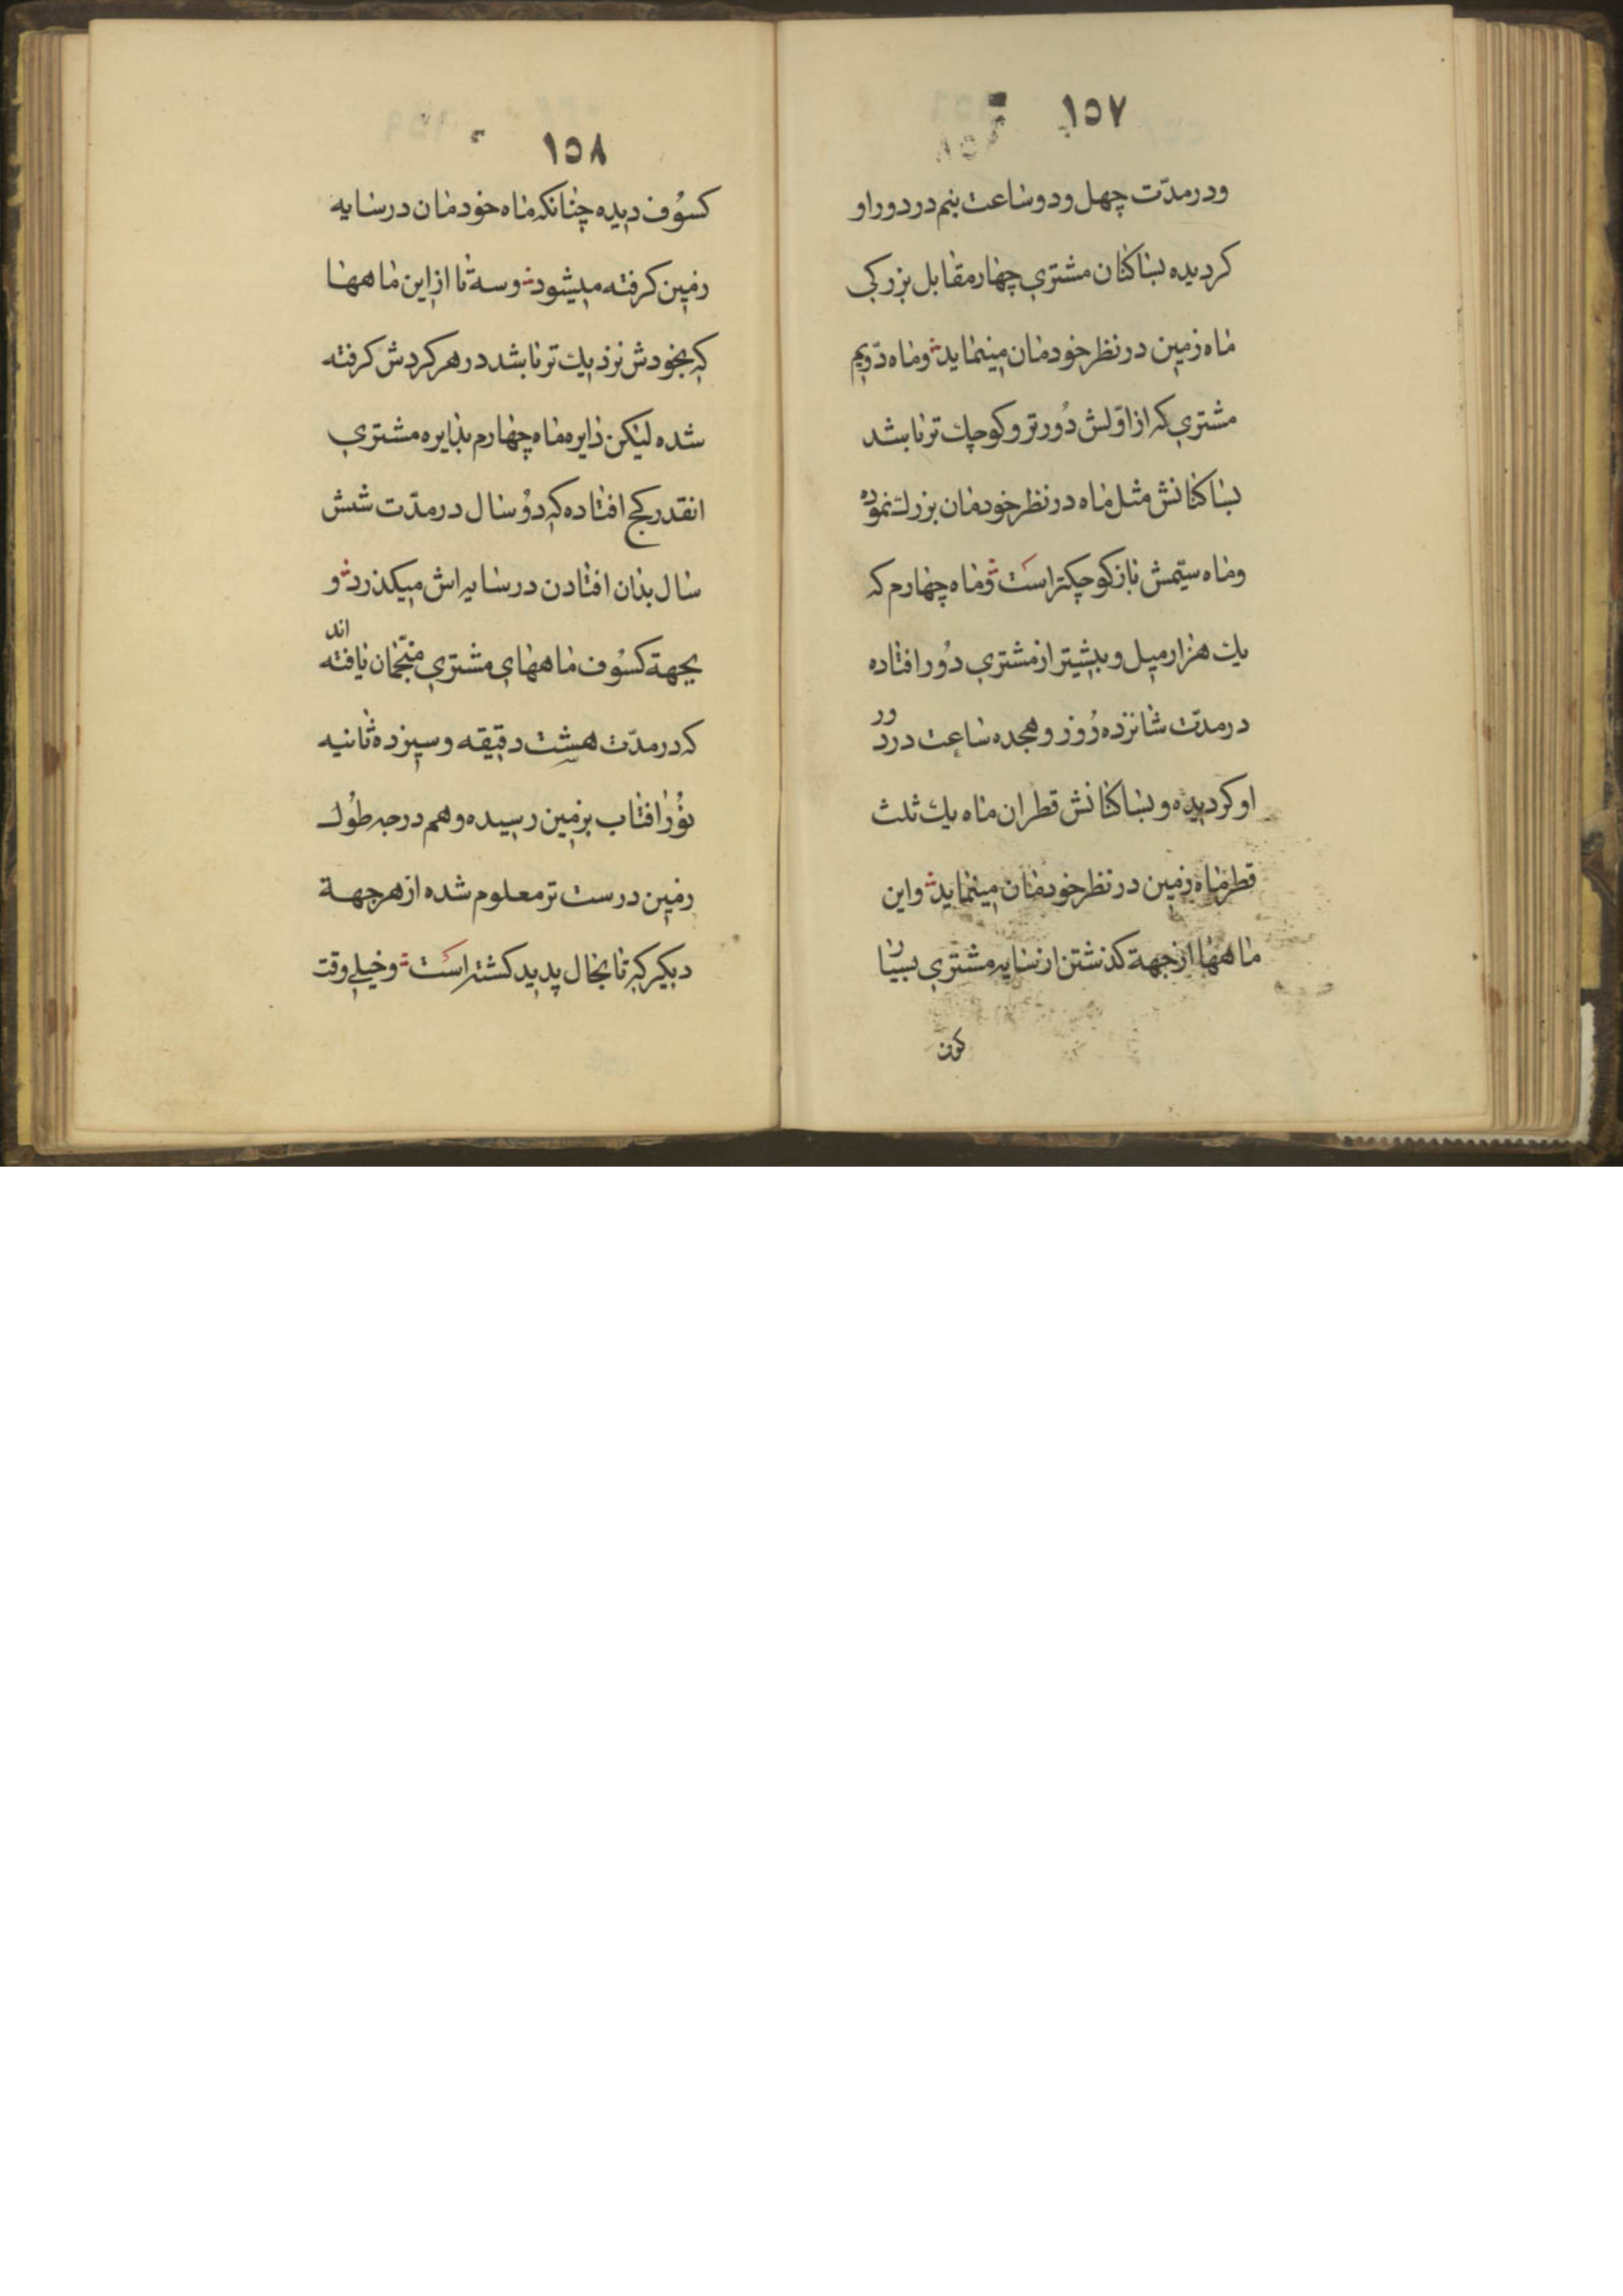 ١٥٧
ودر مدّت چهل ودو ساعت نیم در دور او
کردیده بساکنان مشتري چهار مقابل بزرکي
ماه زمین در نظر خودمان مینماید وماه دّویم
مشتري که از اوّلش دُورتر وکوچك تر باشد
بساکنانش مثل ماه در نظر خودمان بزرك نموده
وماه سیّمش باز کوچکتر است وماه چهارم که
یك هزار میل وبیشتر از مشتري دُور افتاده
در مدّت شانزده رُوز وهجده ساعت در دور
او کردیده وبساکنانش قطر ان ماه یك ثلث
قطر ماه زمین در نظر خودمان مینماید واین
ماهها از جهة کذشتن از سایه مشتري بسیار
١٥٨
کسوُف دیده چنانکه ماه خودمان در سایه
زمین کرفته میشود وسه تا از این ماهها
که بخودش نزدیك تر باشد در هر کردش کرفته
شده لیکن دایره ماه چهارم بدایره مشتري
انقدر کج افتاده که دوُ سال در مدّت شش
سال بدان افتادن در سایه اش میکذرد و
بجهة کسوُف ماههاي مشتري منجّمان یافته اند
که در مدّت هشت دقیقه وسیزده ثانیه
نوُر افتاب بزمین رسیده وهم درجه طوُل
زمین درست تر معلوم شده از هر جهة
دیکر که تا بحال پدید کشته است وخیلي وقت